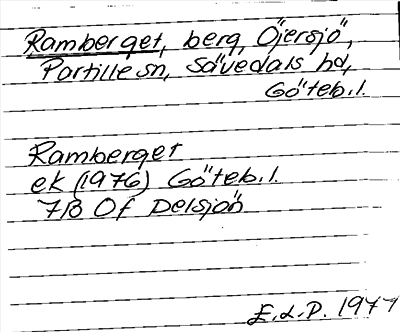 Ramberget, berg, Öjersjö,
Partille sn, Sävedals hd,
Göteb.l.
Ramberget
ek (1976) Göteb.l.
7B 0f Delsjön
E.L.P. 1977